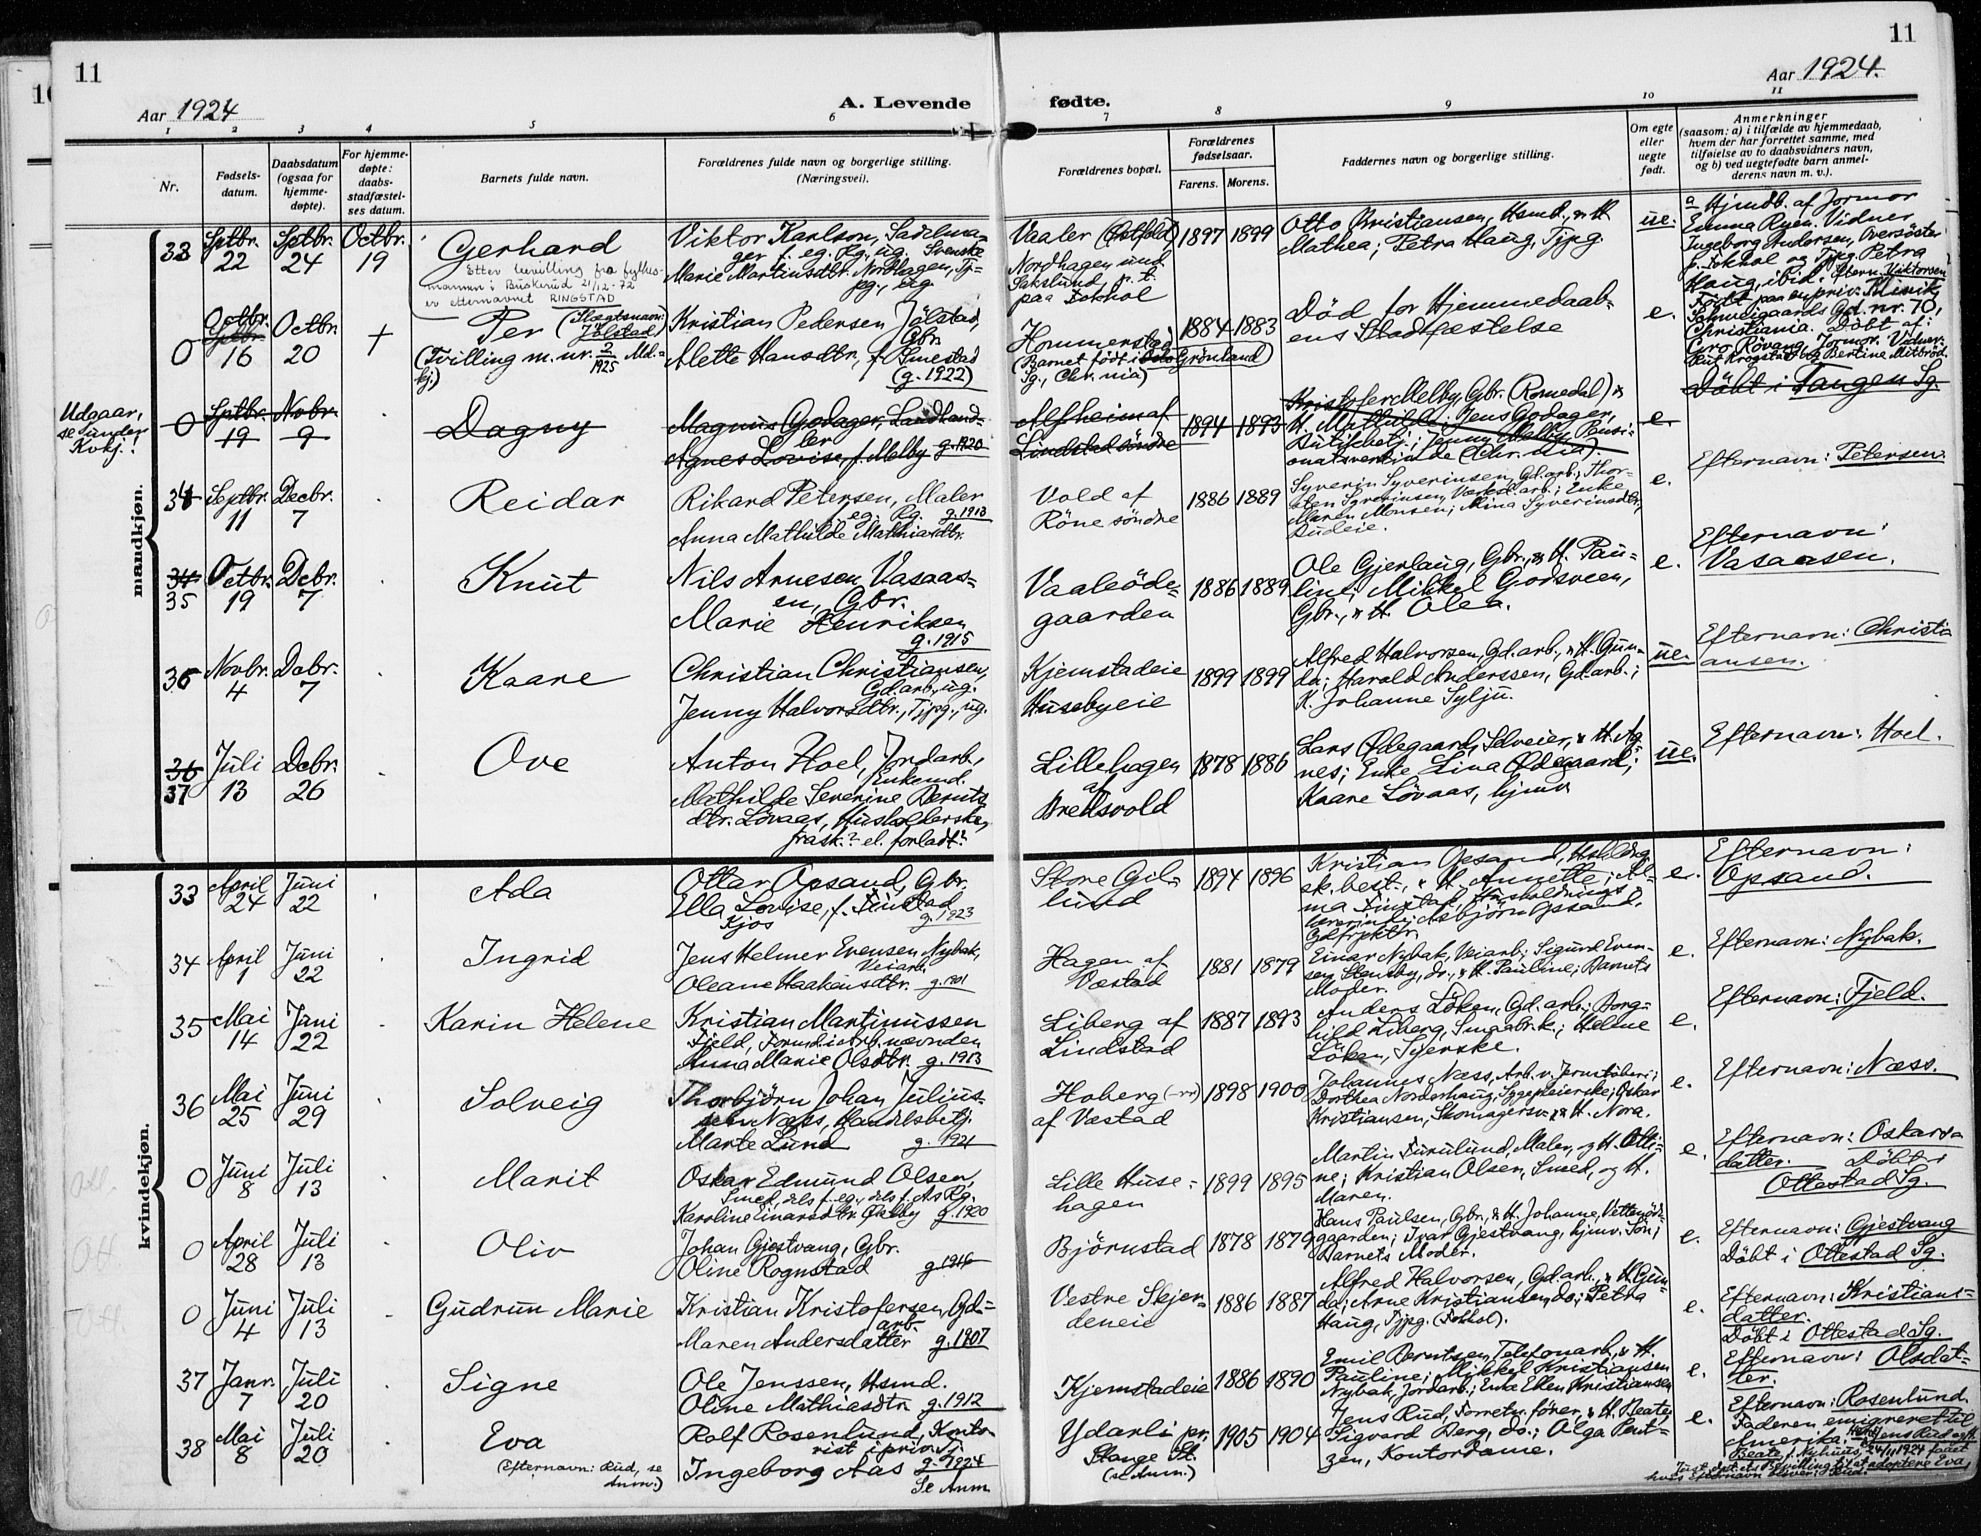 11
Aar 1924
A. Levende
1 2 3 4 5 6
Nr.
Fødsels-
datum.
Daabsdatum
(ogsaa for
hjemme-
døpte).
For hjemme-
døpte:
daabs-
stadfæstel-
ses datum.
Barnets fulde navn.
Forældrenes fulde navn og borgerlige stilling.
(Næringsvei).
11
Aar 1924.
fødte.
7 8 9 10 11
Forældrenes bopæl.
Forældrenes
fødselsaar.
Farens. Morens.
Faddernes navn og borgerlige stilling.
Om egte
eller
uegte
født.
Anmerkninger
(saasom: a) i tilfælde av hjemmedaab,
hvem der har forrettet samme, med
tilføielse av to daabsvidners navn,
og b) ved uegtefødte barn anmel-
derens navn m. v.).
mandkjøn.
33 Sptbr. 22 Sptbr. 24 Octbr. 19
Gerhard
Etter bevilling fra fylkes-
mannen i Buskerud 21/12-72
er etternavnet RINGSTAD
Viktor Karlson, Sadelma-
ger f. eg. Rg., ug. Svenske
Marie Martinsdtr. Nordhagen, Tj-
pg., ug.
Vaaler (Østfold)
Nordhagen und.
Sakslund, p. t.
paa Fokhol
1897 1899
Otto Kristiansen, Hsmd., & H.
Mathea; Petra Haug, Tjpg.
ue.
a Hjmdb. af Jormor
Emma Ryen. Vidner
Ingeborg Andersen, Oversöster
f. Fokhol og Tjpg. Petra
Haug, ibid. Eftern. Viktorsen
0 Octbr. Sptbr. 16 Octbr. 20 +
Per (Slægtsnavn:
Jölstad)
(Tvilling m. nr. 2/1925 Md.-
kj.)
Kristian Pedersen Jölstad,
Gbr.
Alette Hansdtr., f. Smestad
(g. 1922)
Hommerstad
(Barnet født i Oslo Grönland
Sg., Chr.nia)
1884 1883
Död for Hjemmedaab-
ens Stadfæstelse
e.
Födt paa en priv. Klinik,
Schweigaards Gd. nr. 70,
Christiania. Döbt af:
Gro Røvang, Jormor. Vidner:
Rut Krogstad og Bertine Mitbröd.
Udgaar,
se under
Kvkj.
0 Sptbr. 19 Novbr. 9
Dagny
Magnus Godager, Landhand-
ler
Agnes Lovise, f. Melby g. 1920
Alfheim af
Lindstad söndre
1894 1893
Kristofer Melby, Gbr. (Romedal) &
H. Mathilde; Jens Godager,
Butikbetj.; Jenny Melby, Pensi-
onatsvertinde (Chr.nia).
e.
Döbt i Tangen Sg.
34 Septbr. 11 Decbr. 7
Reidar
Rikard Petersen, Maler
eg. Rg. g. 1913
Anna Mathilde Mathiasdtr.
Vold af
Röne söndre
1886 1889
Syverin Syverinsen, Gd.arb.; Thor-
sten Syverinsen, Værksd.arb.; Enke
Maren Monsen; Mina Syverinsdtr.,
Budeie.
e.
Efternavn: Petersen.
34 35 Octbr. 19 Debr. 7
Knut
Nils Arnesen Vasaas-
en, Gbr.
Marie Henriksen
g. 1915
Vaaleöde-
gaarden
1886 1889
Ole Gjerlaug, Gbr., & H. Pau-
line; Mikkel Godsveen,
Gbr., & H. Olea.
e.
Efternavn:
Vasaasen.
36 Novbr. 4 Debr. 7
Kaare
Christian Christiansen,
Gd.arb., ug.
Jenny Halvorsdtr., Tjpg., ug.
Kjemstadeie
Husebyeie
1899 1899
Alfred Halvorsen, Gd.arb., & H. Gun-
da; Harald Anderssen, Gd.arb.;
K. Johanne Sylju.
ue.
Efternavn: Christi-
ansen.
36 37 Juli 13 Debr. 26
Ove
Anton Hoel, Jordarb.,
Enkemd.
Mathilde Severine Bernts-
dtr. Lövaas, Husholderske,
frask.? el. forladt?
Lillehagen
af
Bredsvold
1878 1886
Lars Ødegaard, Selveier, & H. Ag-
nes; Enke Lina Ødegaard;
Kaare Lövaas, hjmv.
ue.
Efternavn: Hoel.
kvindekjøn.
33 April 24 Juni 22
Ada
Ottar Opsand, Gbr.
Ella Lovise, f. Finstad
Kjos g. 1923
Store Gil-
lund
1894 1896
Kristian Opsand,
sk. best., & H. Annette; Al-
ma Finstad, Husholdnings-
lærerinde; Asbjörn Opsand,
e.
Efternavn:
Opsand.
34 April 1 Juni 22
Ingrid
Jens Helmer Evensen Nybak,
Veiarb.
Oleane Haakensdtr. g. 1901
Hagen af
Væstad
1881 1879
Einar Nybak, Veiarb.; Sigurd Even-
sen Stensby, do., & H. Pauline; Barnets
Moder.
e.
Efternavn: Nybak.
35 Mai 14 Juni 22
Karin Helene
Kristian Martinussen
Fjeld, Formd. i Arb.nævnden
Anna Marie Olsdtr. g. 1913
Liberg af
Lindstad
1887 1893
Anders Löken, Gd.arb.; Borg-
hild Liberg, Smaabr.k.; Helene
Löken, Syerske.
e.
Efternavn: Fjeld.
36 Mai 25 Juni 29
Solveig
Thorbjörn Johan Julius-
sen Næss, Handelsbetj.
Marte Lund g. 1921
Hoberg
af Væstad
1898 1900
Johannes Næss, Arb. v. Jernstöberi;
Dorthea Norderhaug, Sygepleierske; Oskar
Kristiansen, Skomagersv. & H. Nora.
e.
Efternavn: Næss.
0 Juni 8 Juli 13
Marit
Oskar Edmund Olsen,
Smed, dels f. eg., dels f. As Rg.
Karoline Einarsdtr. Økelby g. 1920
Lille Huse-
hagen
1899 1895
Martin Furulund, Maler, og H. Otti-
ne; Kristian Olsen, Smed, og H.
Maren.
e.
Efternavn: Oskars-
datter. Döbt i
Ottestad Sg.
0 April 28 Juli 13
Oliv
Johan Gjestvang, Gbr.
Oline Rognstad g. 1916
Björnstad
1878 1879
Hans Paulsen, Gbr., & H. Johanne, Vetteröde-
gaarden; Ivar Gjestvang, hjmv. Sön;
Barnets Moder.
e.
Efternavn: Gjestvang
Döbt i Ottestad Sg.
0 Juni 4 Juli 13
Gudrun Marie
Kristian Kristofersen, Gd.-
arb.
Maren Andersdatter g. 1907
Vestre Skjer-
deneie
1886 1887
Alfred Halvorsen, Gd.arb., & H. Gun-
da; Arne Kristiansen, do.; Petra
Haug, Tjpg. (Fokhol).
e.
Efternavn: Kristians-
datter.
Döbt i Ottestad Sg.
37 Janr. 7 Juli 20
Signe
Ole Jenssen, Hsmd.
Oline Mathiasdtr. g. 1912
Kjemstadeie
1886 1890
Emil Berntsen, Telefonarb., & H.
Pauline; Mikkel Kristiansen
Nybak, Jordarb.; Enke Ellen Kristiansen
e.
Efternavn: Olsdat-
ter.
38 Mai 8 Juli 20
Eva
(Efternavn: Rud, se
Anm.)
Rolf Rosenlund, Konto-
rist i priv. Tj.
Ingeborg Aas g. 1924
Se Anm.
Ydarli pr.
Stange St.
(se Anm.)
1905 1904
Jens Rud, Forretn.förer, & H. Beate;
Sigvard Berg, do.; Olga Bent-
zen, Kontordame.
e.
Efternavn: Rosenlund.
Faderen emigreret til
Amerika. Jens Rud og H.
Beate f. Nyhuus, 24/11 1924 faaet
Just.dpt.ets Bevilling til at adoptere Eva,
hvis Efternavn bliver: Rud.